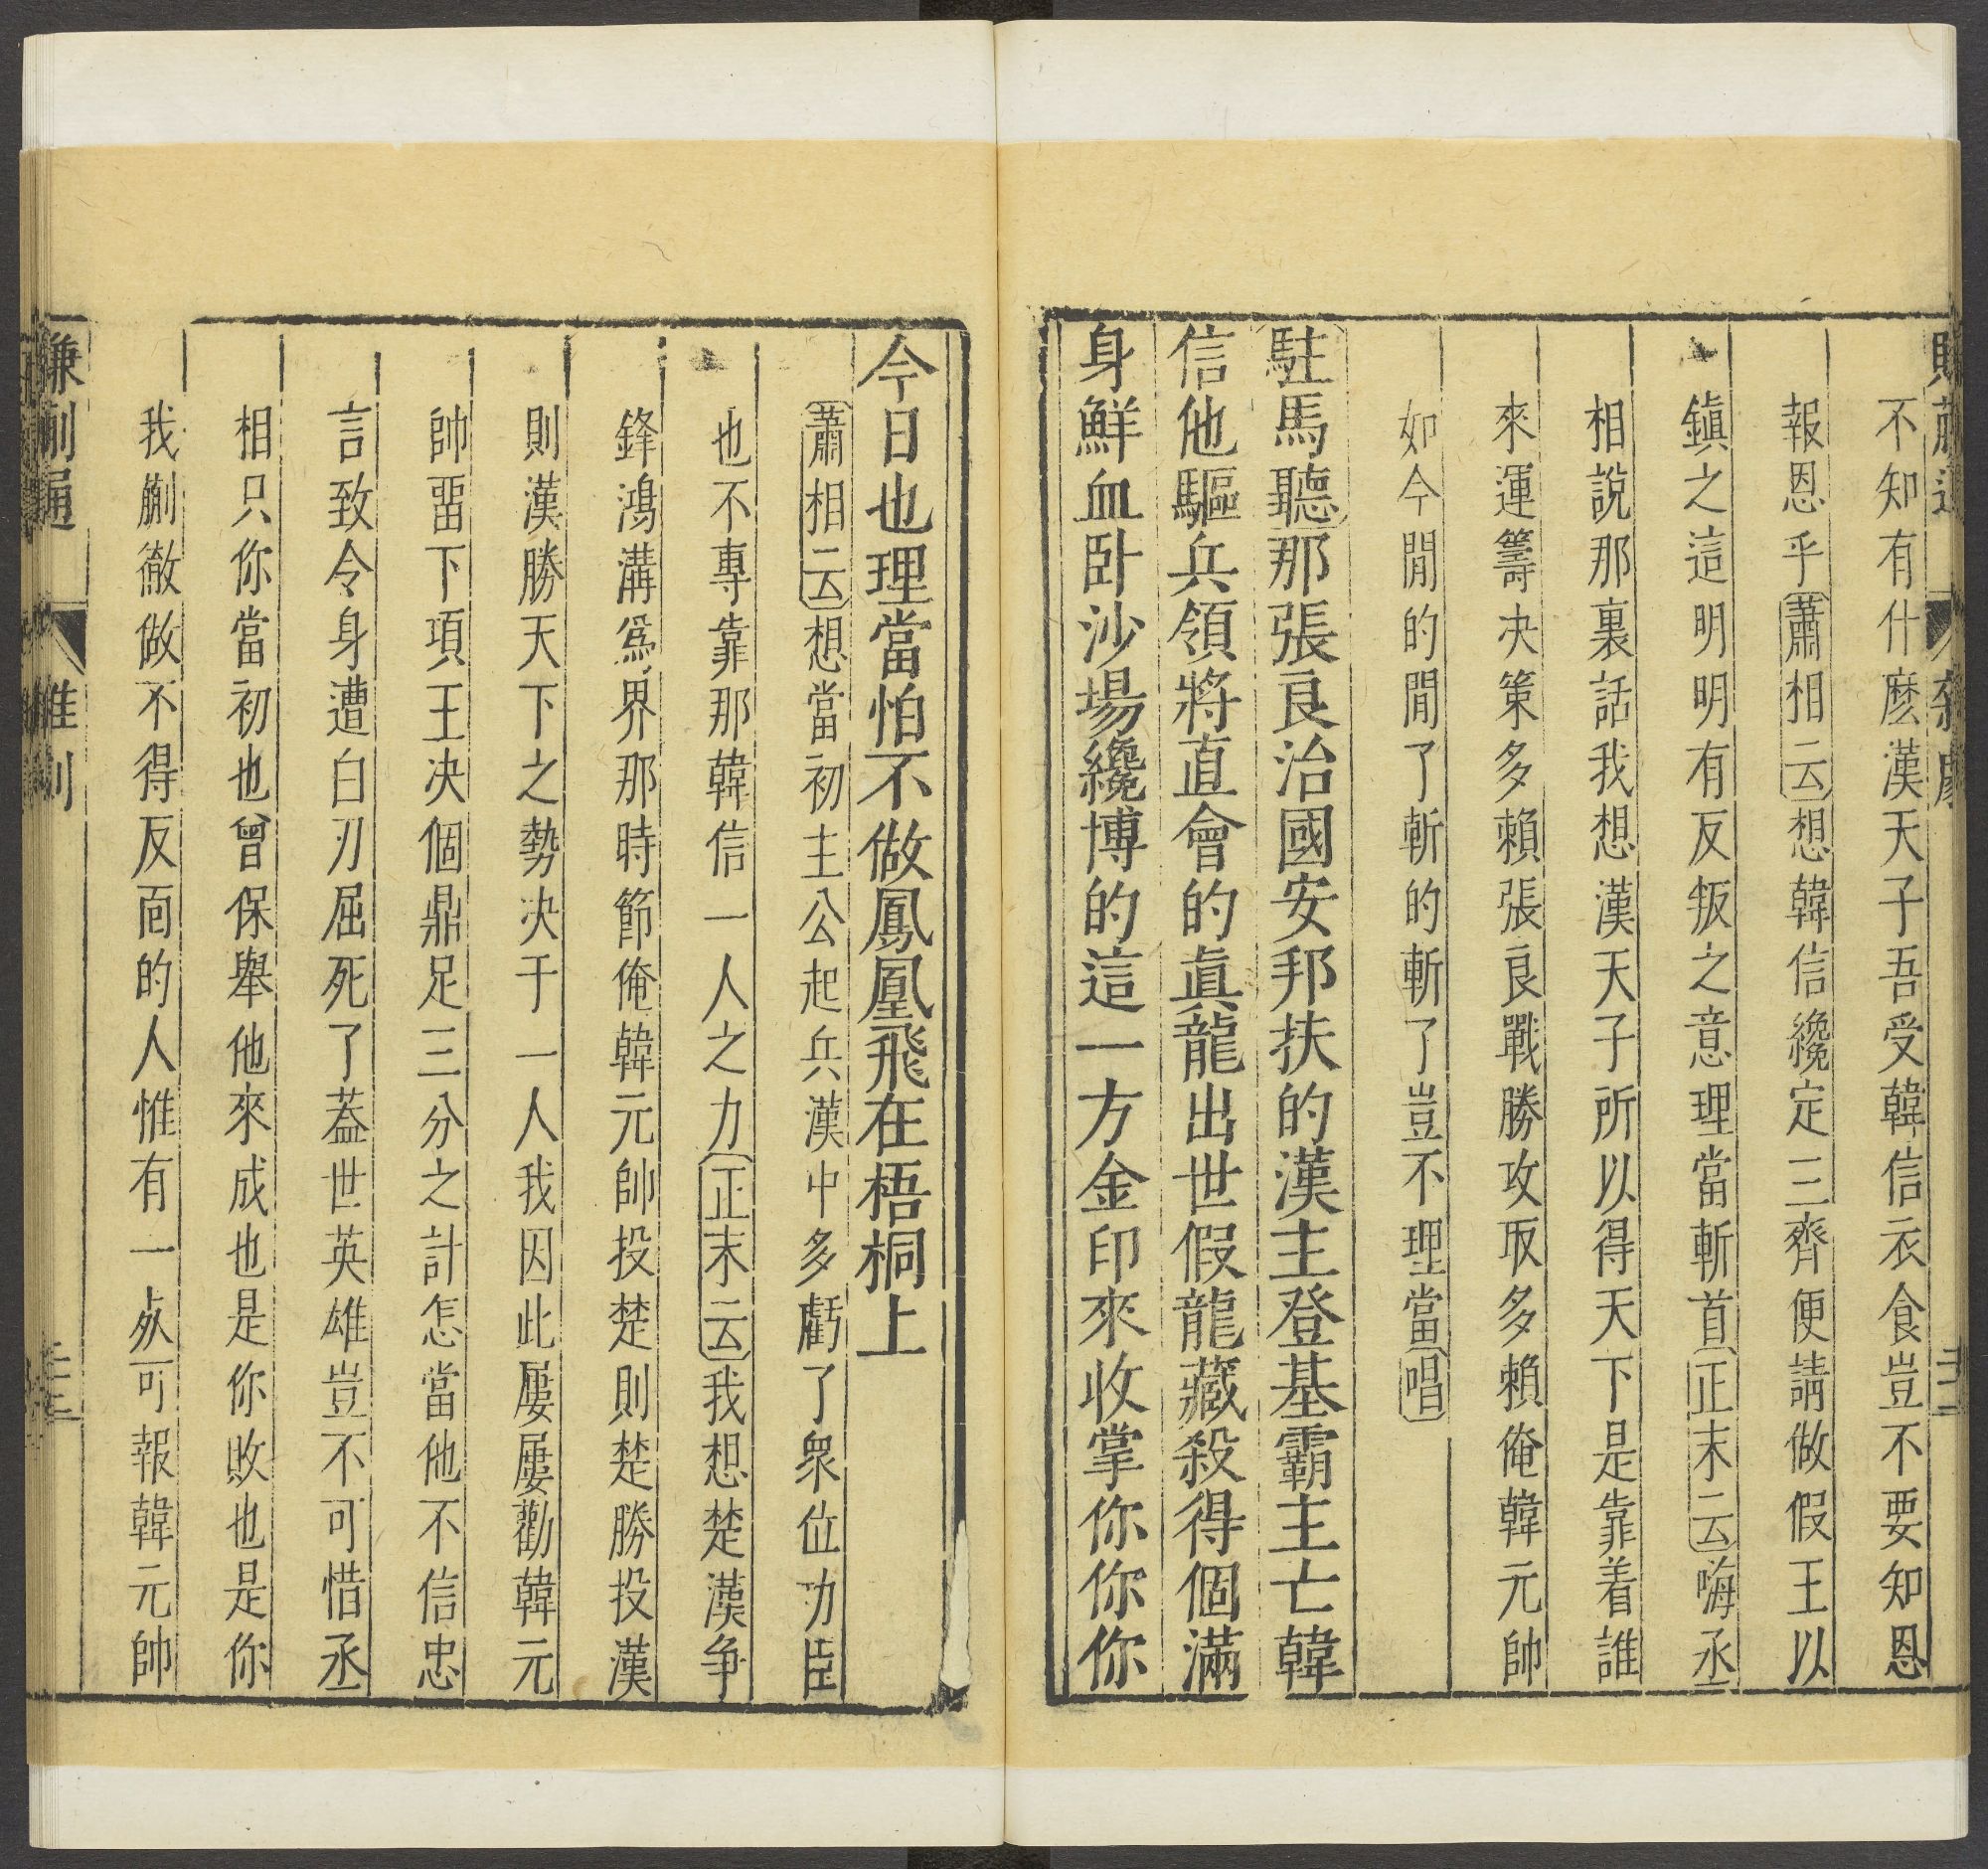 不知有什麽漢天子吾受韓信衣食豈不要知恩
報恩乎蕭相云想韓信纔定三齊便請做假王以
鎮之這明明有反叛之意理當斬首正末云嗨丞
相說那裏話我想漢天子所以得天下是靠着誰
來運籌决策多賴張良戰勝攻取多賴俺韓元帥
如今閒的閒了斬的斬了豈不理當唱
駐馬聽那張良治國安邦扶的漢主登基霸主亡韓
信他驅兵領將直會的眞龍出世假龍藏殺得個滿
身鮮血卧沙場纔博的這一方金印來收掌你你你
今日也理當怕不做鳳凰飛在梧桐上
蕭相云想當初主公起兵漢中多虧了衆位功臣
也不專靠那韓信一人之力正末云我想楚漢争
鋒鴻溝爲界那時節俺韓元帥投楚則楚勝投漢
則漢勝天下之勢决于一人我因此屢屢勸韓元
帥畱下項王决個鼎足三分之計怎當他不信忠
言致令身遭白刃屈死了蓋世英雄豈不可惜丞
相只你當初也曾保舉他來成也是你敗也是你
我蒯徹做不得反面的人惟有一㸃可報韓元帥